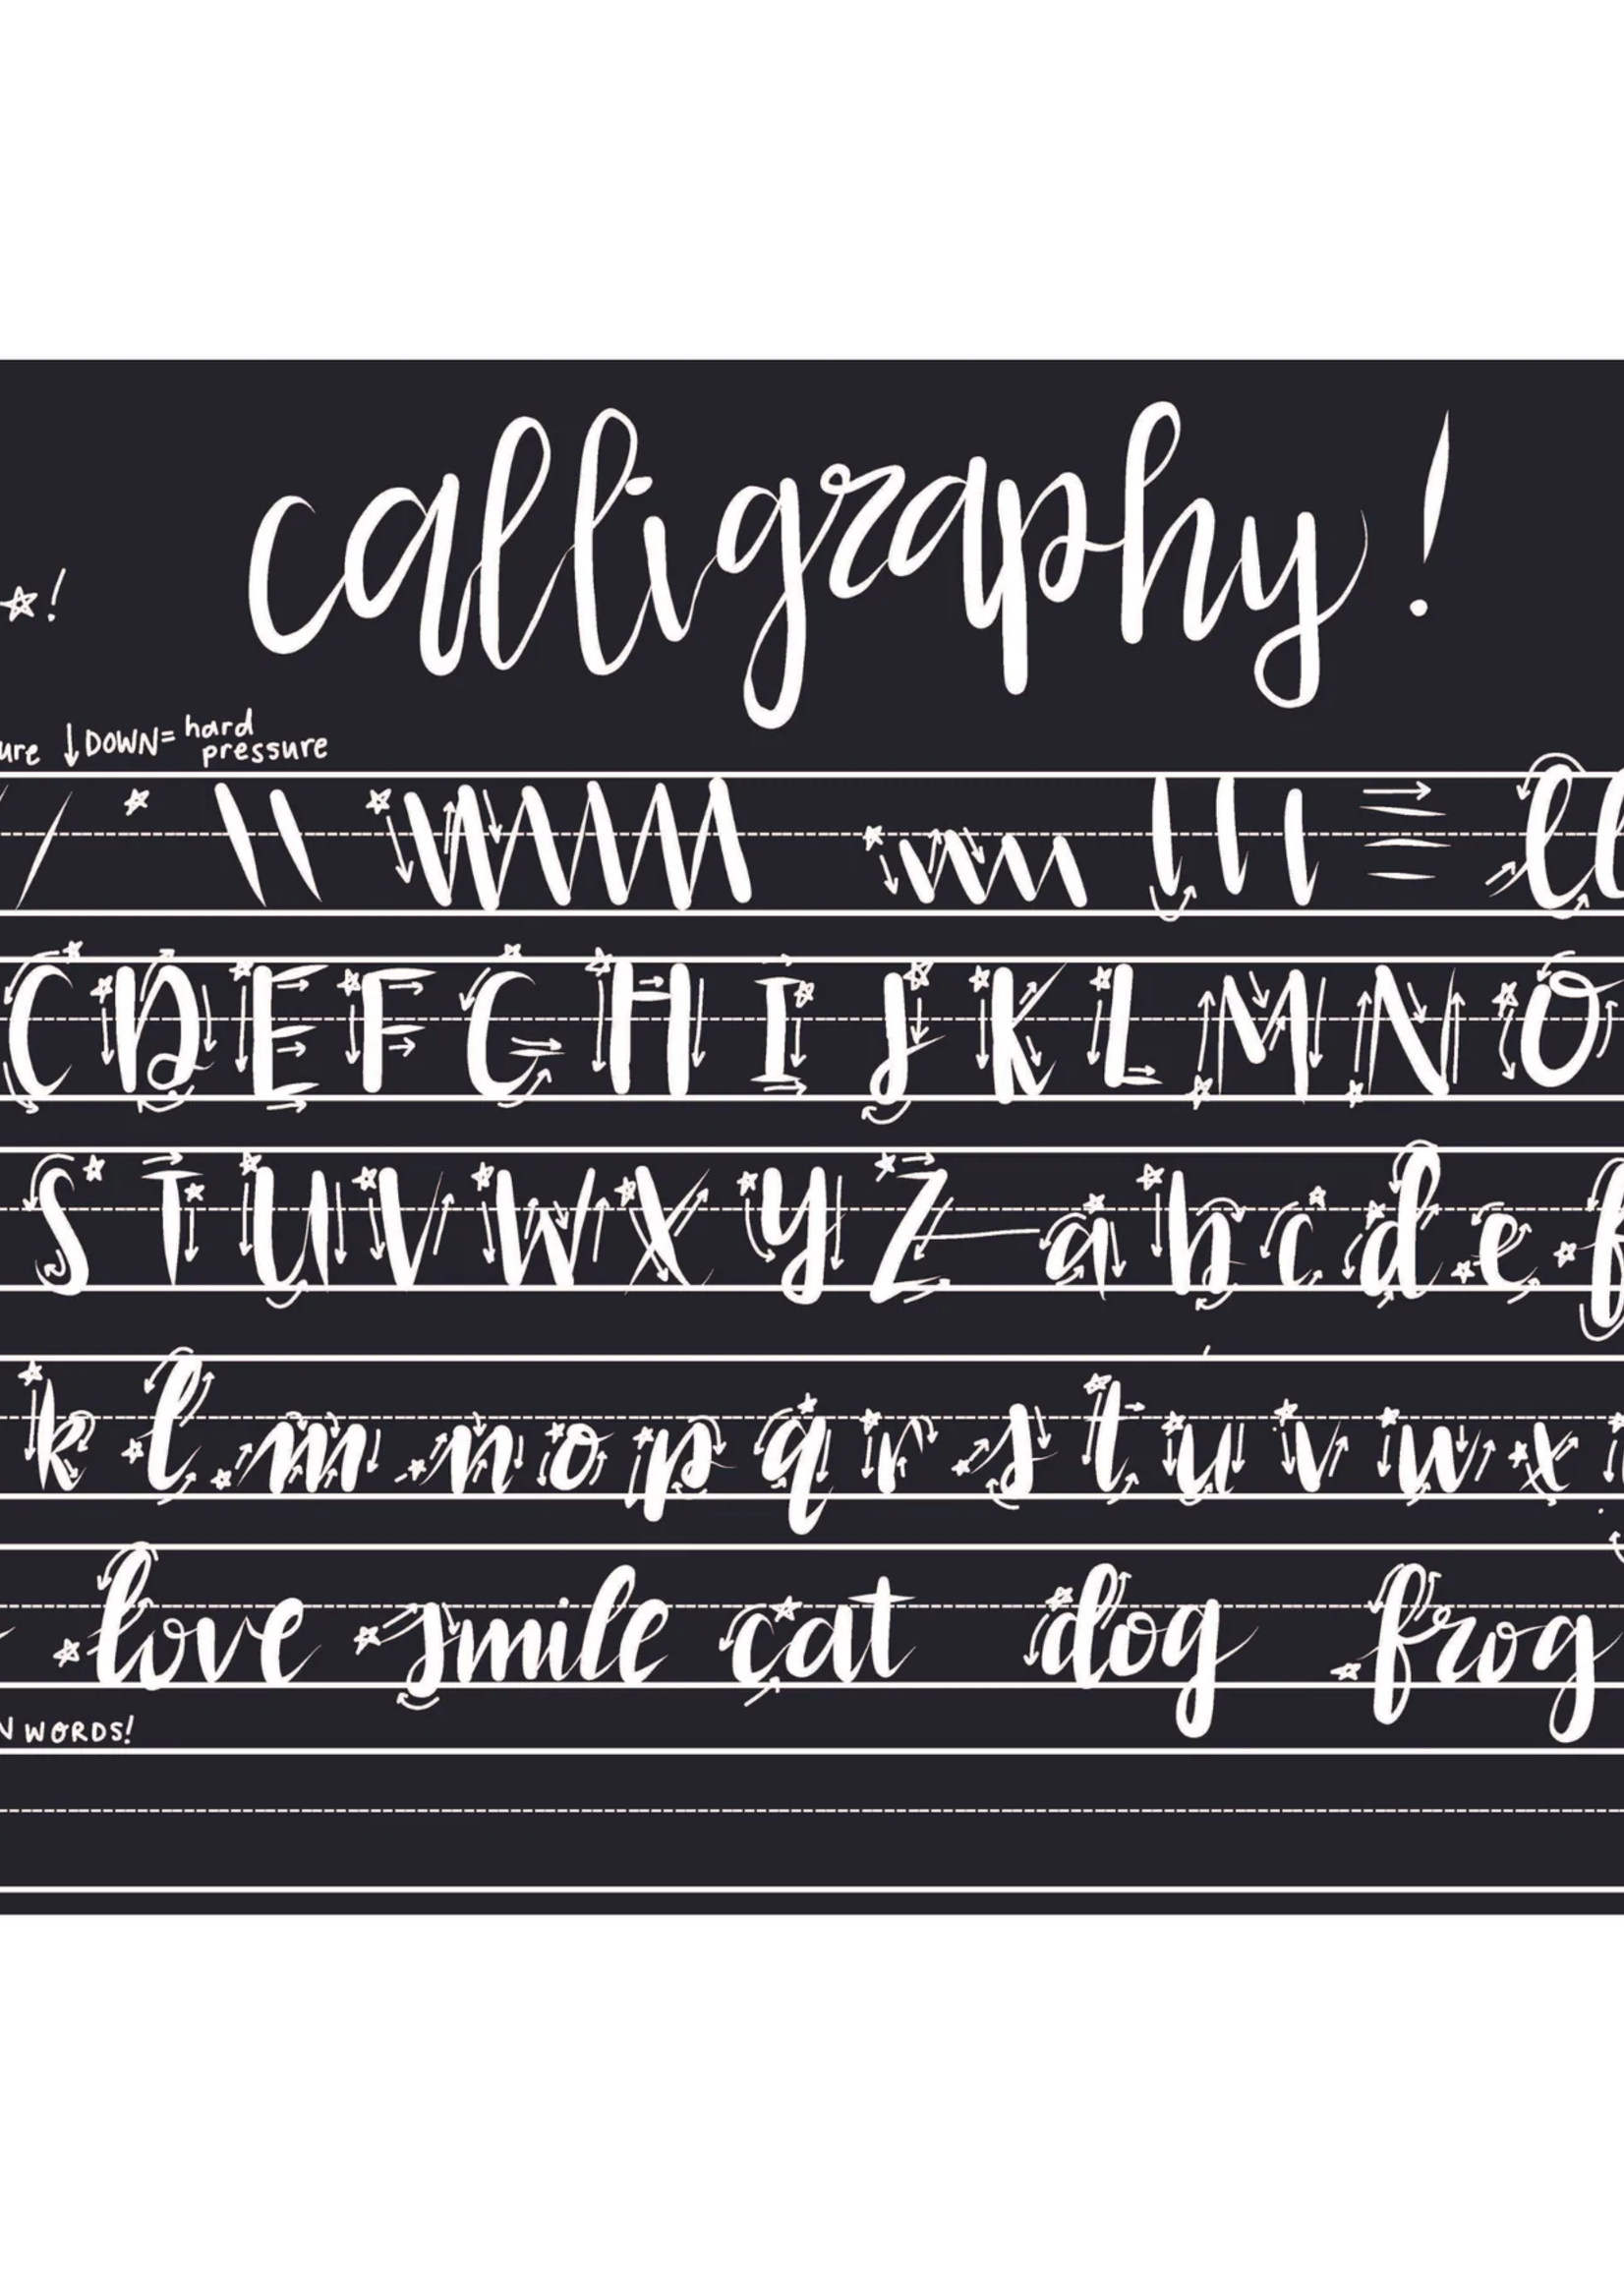 calligraphy!
DOWN= hard
pressure
C D E F G H I J K L M N O
S T U V W X Y Z a b c d e f
k l m n o p q r s t u v w x
love smile cat dog frog
WORDS!